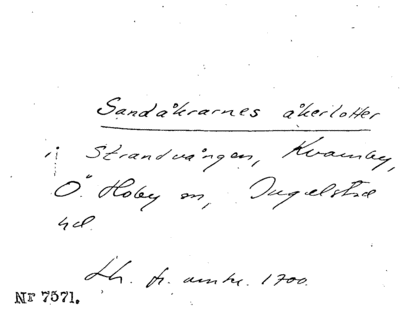 Sandåkrarnes åkerlotter
i Strandvången, Kvarnby,
Ö. Hoby sn, Ingelstad
hd.
Lh. fr. omkr. 1700.
Nr 7571.